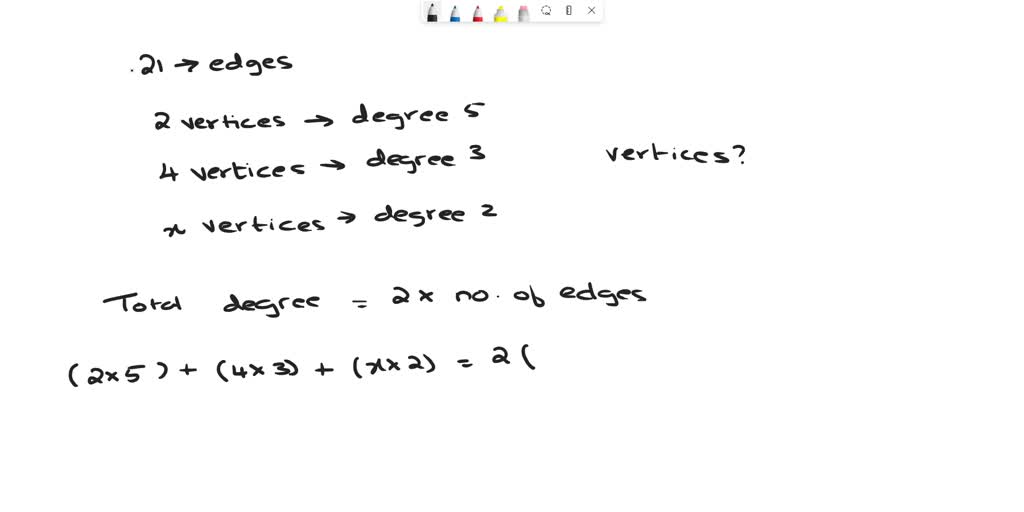 .21 → edges
2 vertices → degree 5
4 vertices → degree 3
vertices?
x vertices → degree 2
Total degree = 2 x no. of edges
(2x5) + (4x3) + (x x 2) = 2(